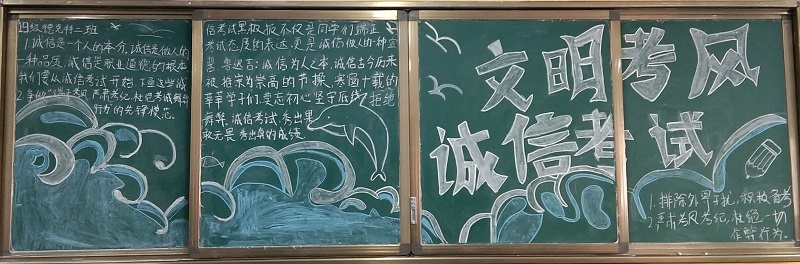 19级德克特二班
1.诚信是一个人的本分,诚信是做人的
一种品质,诚信是职业道德的根本
我们要从诚信考试开始,
2.争做 端正考风,严肃考纪,杜绝考试舞弊
行为的先锋模范。
信考试黑板报不仅是同学们端正
考试态度的表达,更是诚信做人的一种
鲁迅言:诚信,为人之本,诚信古今历来
被推崇为崇高的节操,寒窗十载的
莘莘学子们,要忘初心坚守底线,拒绝
舞弊,诚信考试,秀出果
敢无畏 秀出真的成绩
文明考风
诚信考试
1.排除外界干扰,积极备考
2.严肃考风考纪,杜绝一切
作弊行为。